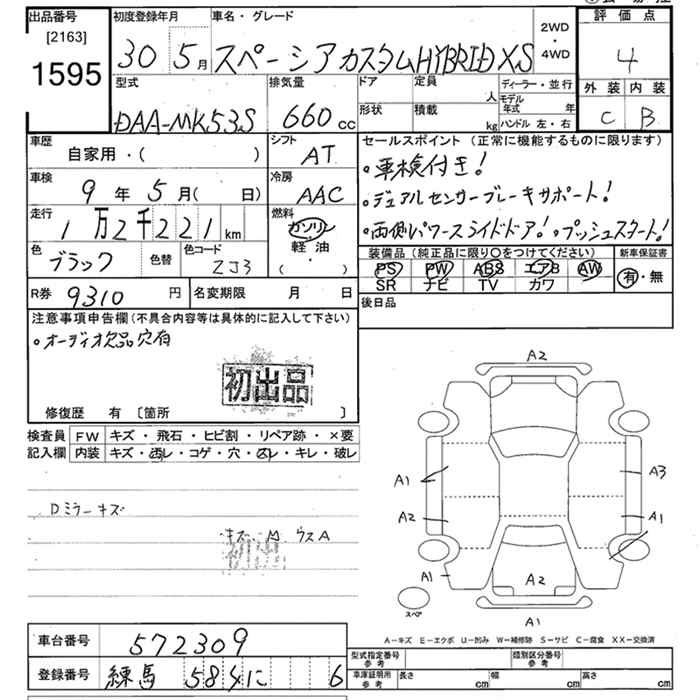 出品番号
[2163]
1595
初度登録年月
30 5月
車名・グレード
スペーシアカスタムHYBRID XS
2WD
・
4WD
評価点
4
外装 内装
C B
型式
DAA-MK53S
排気量
660 cc
ドア
定員
人
形状
積載
kg
ディーラー・並行
モデル年式 年
ハンドル 左・右
車歴
自家用・( )
シフト
AT
車検
9年 5月( 日)
冷房
AAC
走行
1万2千221km
燃料
ガソリン
軽油
( ・ )
色
ブラック
色替
色コード
ZJ3
R券
9310円
名変期限 月 日
セールスポイント (正常に機能するものに限ります)
・車検付き!
・デュアルセンサーブレーキサポート!
・両側パワースライドドア! プッシュスタート!
装備品(純正品に限り○をつけてください)
新車保証書
PS PW ABS エアB AW
SR ナビ TV カワ
有・無
後日品
注意事項申告欄(不具合内容等は具体的に記入して下さい)
・オーディオ欠品穴有
初出品
修復歴 有 [箇所 ]
検査員 FW キズ・飛石・ヒビ割・リペア跡・×要
記入欄 内装 キズ・汚レ・コゲ・穴・スレ・キレ・破レ
Dミラーキズ
キズ M ウスA
初出品
A2
A1
A3
A2
A1
A1
A2
スペア
A1
A-キズ E-エクボ U-凹み W-補修跡 S-サビ C-腐食 XX-交換済
車台番号
572309
登録番号
練馬 584 に 6
型式指定番号
参考
類別区分番号
参考
車庫証明用
参考
長さ cm
幅 cm
高さ cm